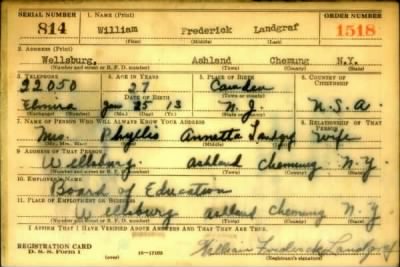 SERIAL NUMBER 1. NAME (Print) ORDER NUMBER
814 William Frederick Landgraf 1518
(First) (Middle) (Last)
2. ADDRESS (Print)
Wellsburg, Ashland Chemung N.Y.
(Number and street or R. F. D. number) (Town) (County) (State)
3. TELEPHONE 4. AGE IN YEARS 5. PLACE OF BIRTH 6. COUNTRY OF CITIZENSHIP
22050 27 Camden
DATE OF BIRTH (Town or county)
Elmira Jan 25 13 N.J. U.S.A.
(Exchange) (Mo.) (Day) (Yr.) (State or country)
7. NAME OF PERSON WHO WILL ALWAYS KNOW YOUR ADDRESS 8. RELATIONSHIP OF THAT PERSON
Mrs. Phyllis Annetta Landgraf Wife
(Mr., Mrs., Miss) (First) (Middle) (Last)
9. ADDRESS OF THAT PERSON
Wellsburg ashland chemung N.Y.
(Number and street or R. F. D. number) (Town) (County) (State)
10. EMPLOYER'S NAME
Board of Education
11. PLACE OF EMPLOYMENT OR BUSINESS
Wellsburg ashland chemung N.Y.
(Number and street or R. F. D. number) (Town) (County) (State)
I AFFIRM THAT I HAVE VERIFIED ABOVE ANSWERS AND THAT THEY ARE TRUE.
REGISTRATION CARD
D. S. S. Form 1 (over) William Frederick Landgraf
(Registrant's signature)